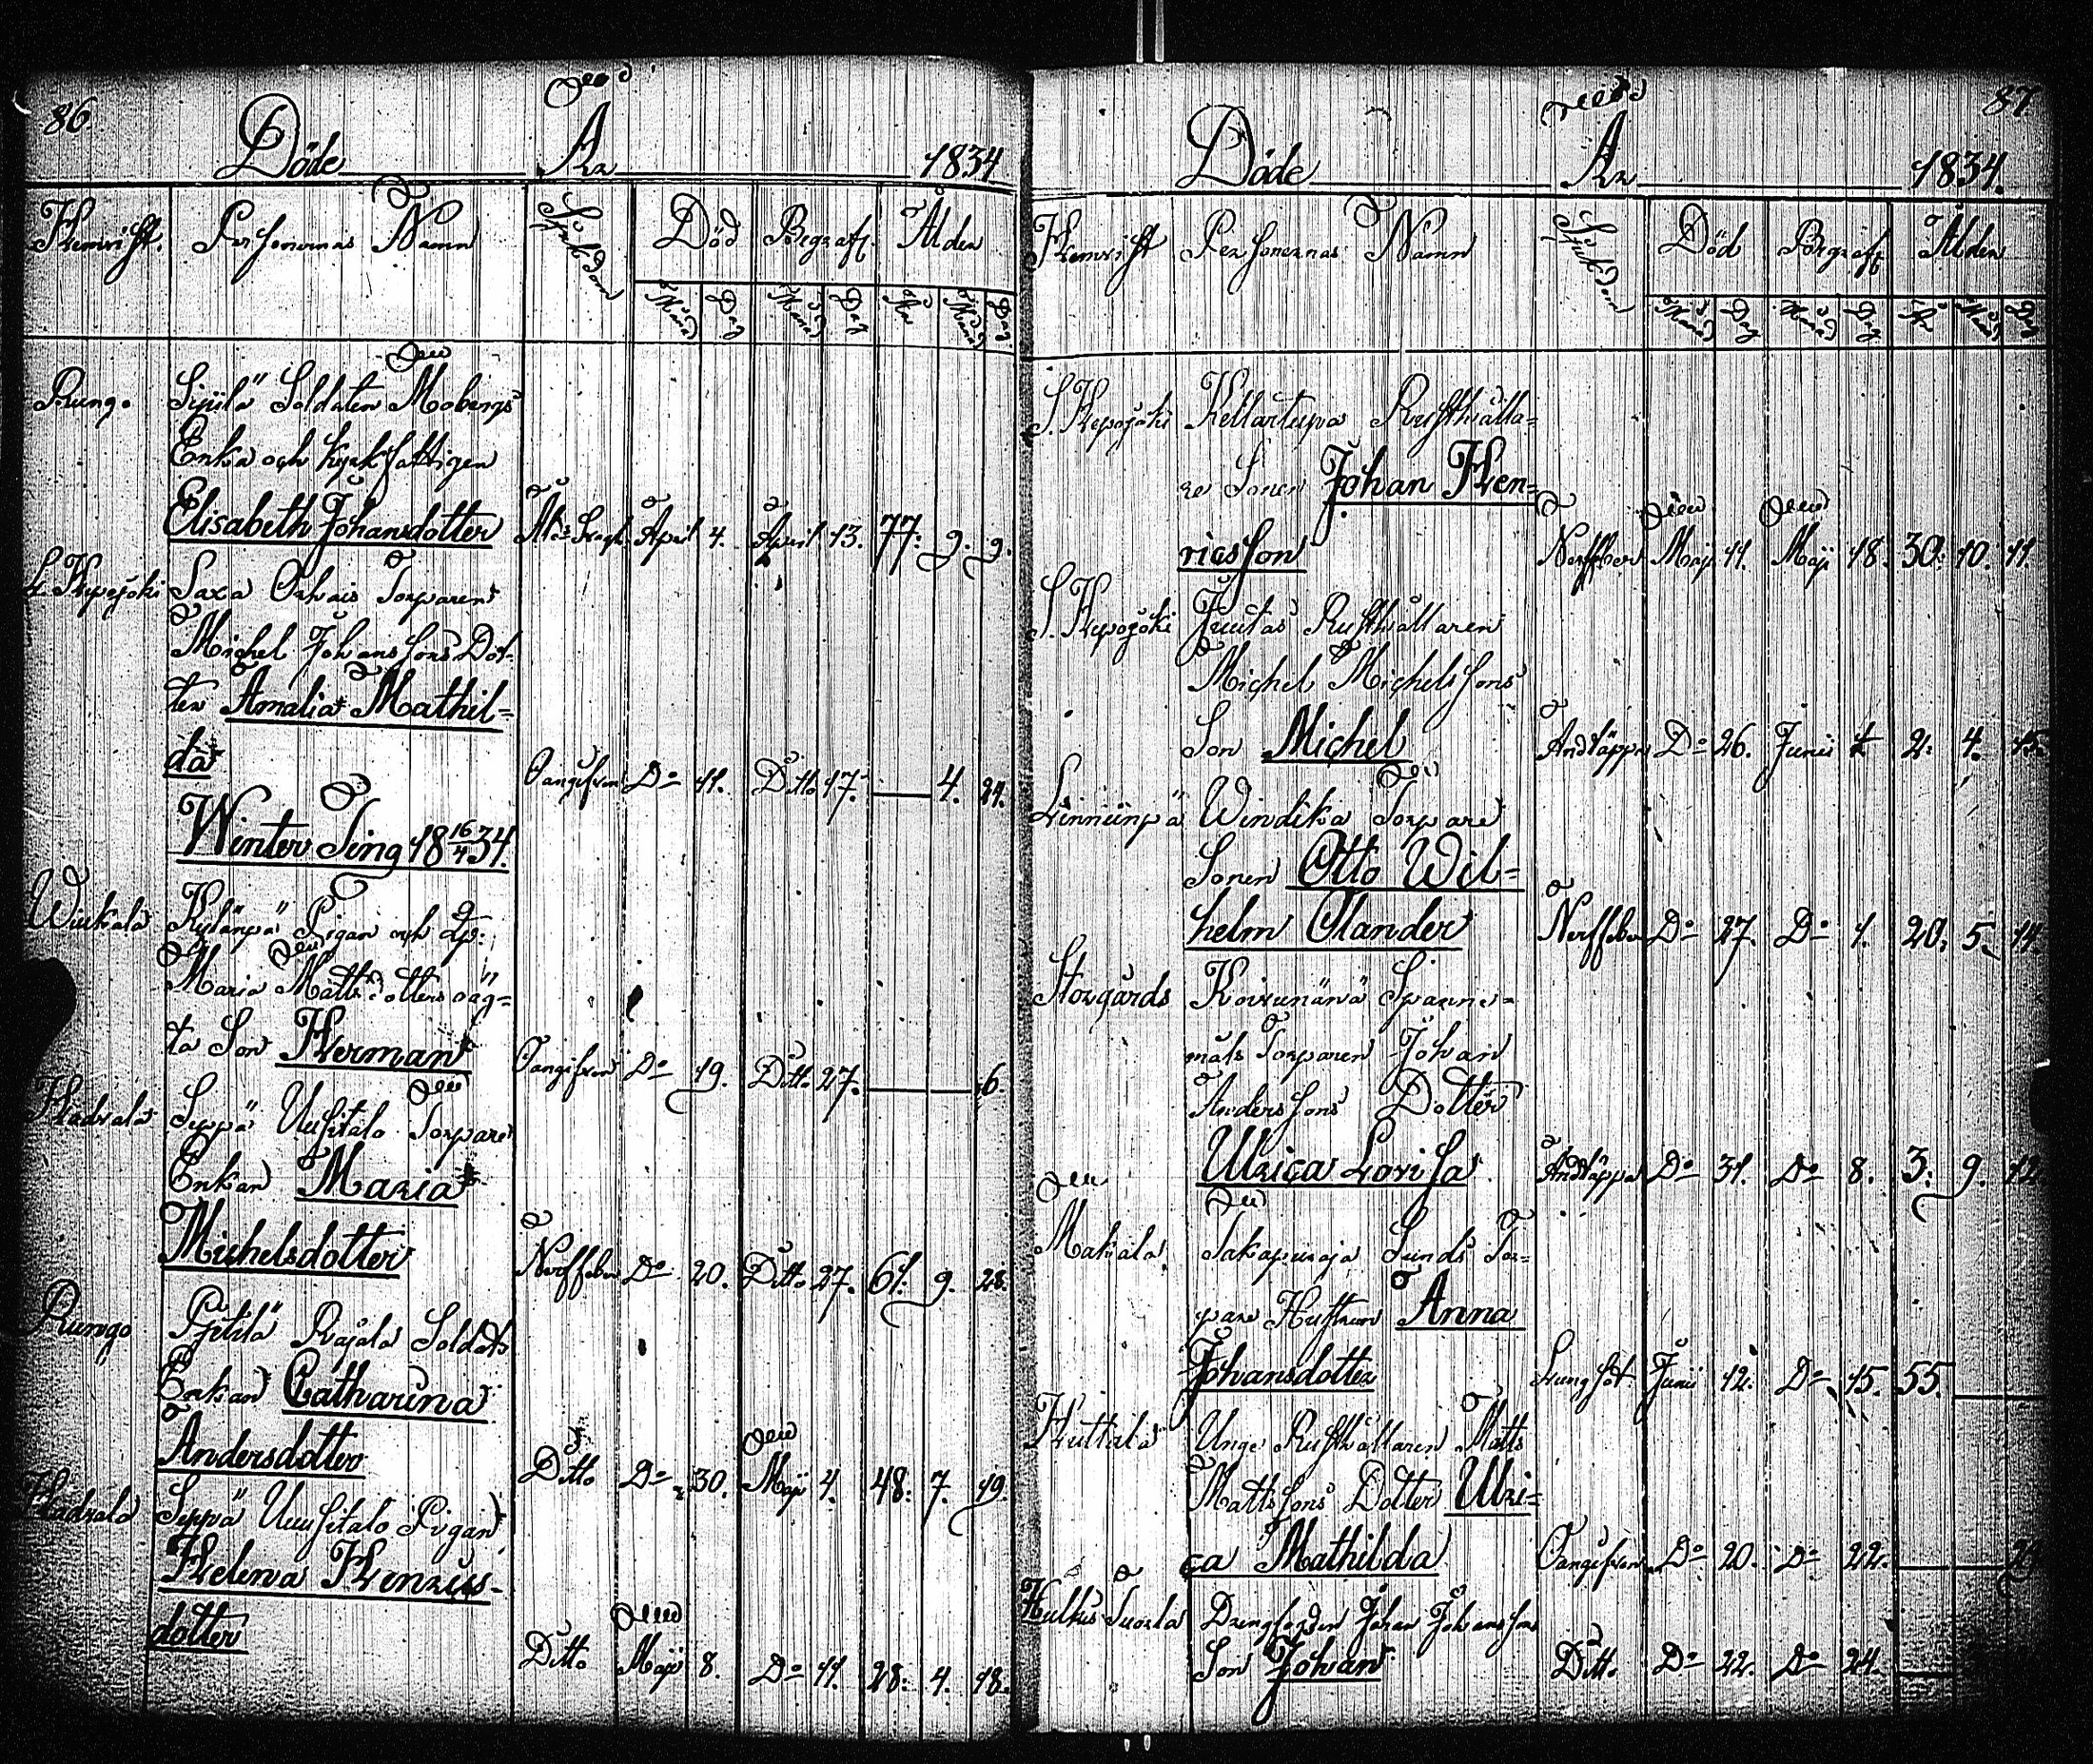 86
Döde År 1834
Hemvist. Personernas Namn Sjukdom Död Begrafn Ålder
Månad Dag Månad Dag År Månad Dag
Rung. Sipilä Soldaten Mobergs
Enka och kyrkfattigen
Elisabeth Johansdotter April 4. April 13. 77. 9. 9.
L. Hepojoki Saxa Torparen
Michel Johanssons Dot-
ter Amalia Mathil=
da Oangifven Do 11. Ditto 17. — 4. 21.
Winter Ting 18 16/4 34.
Wiukala Kylänpä Pigan och
Maria Mattsdotters oäg=
ta Son Herman Oangifven Do 19. Ditto 27. — 6.
Hadvala Seppä Uusitalo Torpare
Enkan Maria
Michelsdotter Nerffeber Do 20. Ditto 27. 61. 9. 28.
Rungo Pjtilä Rajala Soldats
Enkan Catharina
Andersdotter Ditto Do 30. Maji 4. 48. 7. 19.
Hadvala Seppä Uusitalo Pigan
Helena Henrics-
dotter Ditto Maji 8. Do 11. 28. 4. 18.
87
Döde År 1834.
Hemvist Personernas Namn Sjukdom Död Begrafn Ålder
Månad Dag Månad Dag År Månad Dag
S. Hepojoki Kellartupa Rusthålla=
re Sonen Johan Hen=
ricsson Nerffeber Maji 11. Maji 18. 30. 10. 11.
S. Hepojoki Juutas Rusthållaren
Michel Michelssons
Son Michel Andtäppa Do 26. Junii 1 2. 4. 15.
Linnunpä Windika Torpare
Sonen Otto Wil=
helm Olander Nerffeber Do 27. Do 1. 20. 5. 14.
Storgårds Koivunänä Spanne=
måls Torparen Johan
Anderssons Dotter
Ulrica Lovisa Andtäppa Do 31. Do 8. 3. 9. 12
Makala Takapuraja Sunds Tor=
pare Hustrun Anna
Johansdotter Lungsot Junii 12. Do 15. 55. —
Huttala Unge Rusthållaren Matts
Mattssons Dotter Ulri=
ca Mathilda Oangifven Do 20. Do 22. —
Hulkis Suorla Drengkarlen Johan Johanssons
Son Johan Ditt. Do 22. Do 24. —